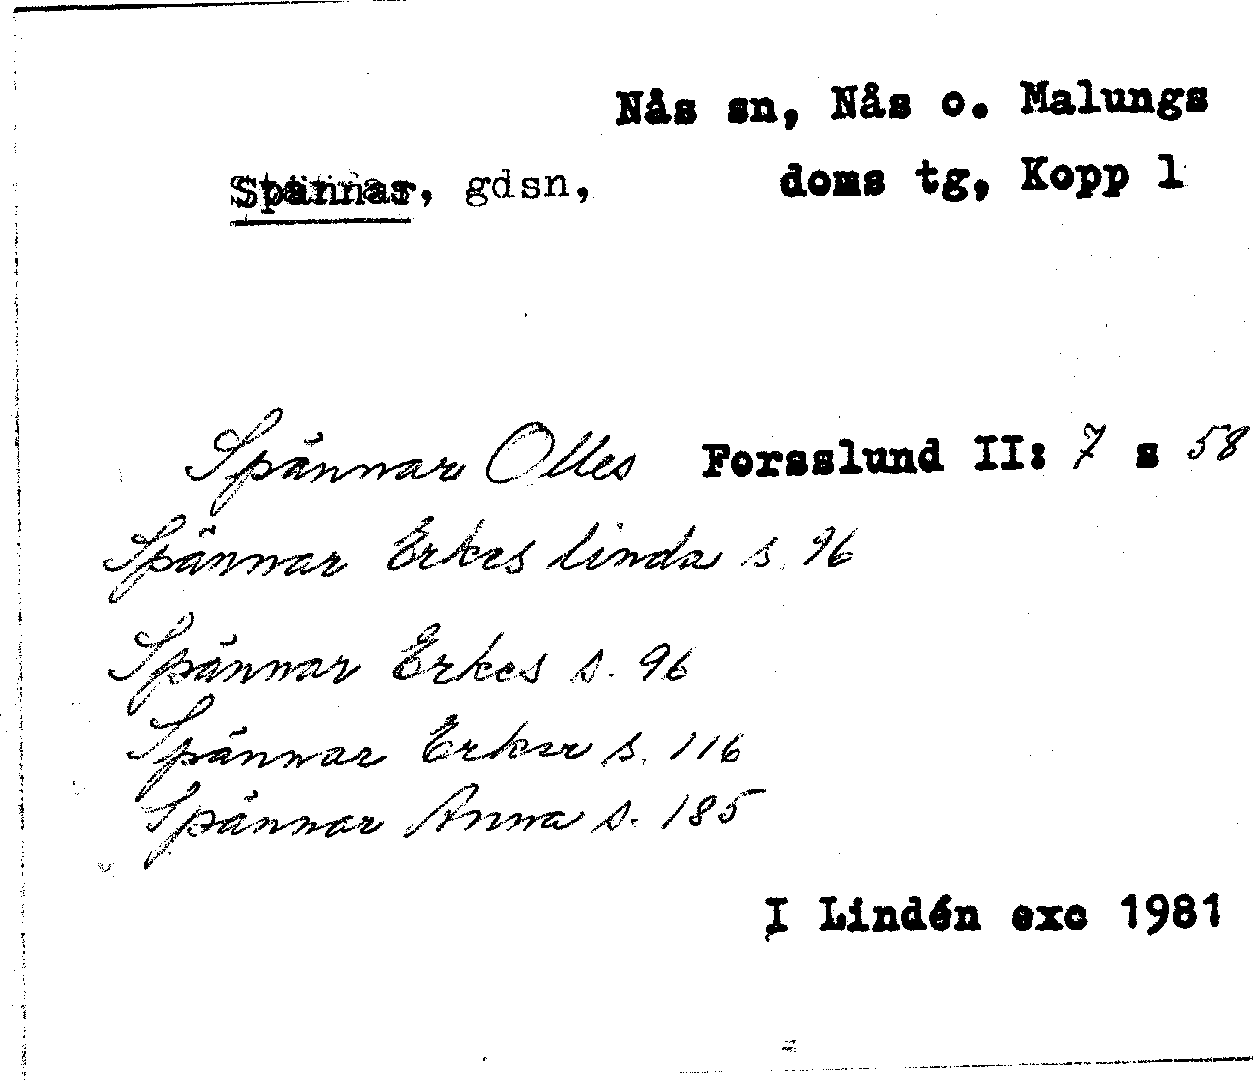 Nås sn, Nås o. Malungs
Spännar, gdsn, doms tg, Kopp l
Spännar Olles Forsslund II: 7 s 58
Spännar Erkes linda s. 96
Spännar Erkes s. 96
Spännar Erker s. 116
Spännar Anna s. 185
I Lindén exc 1981